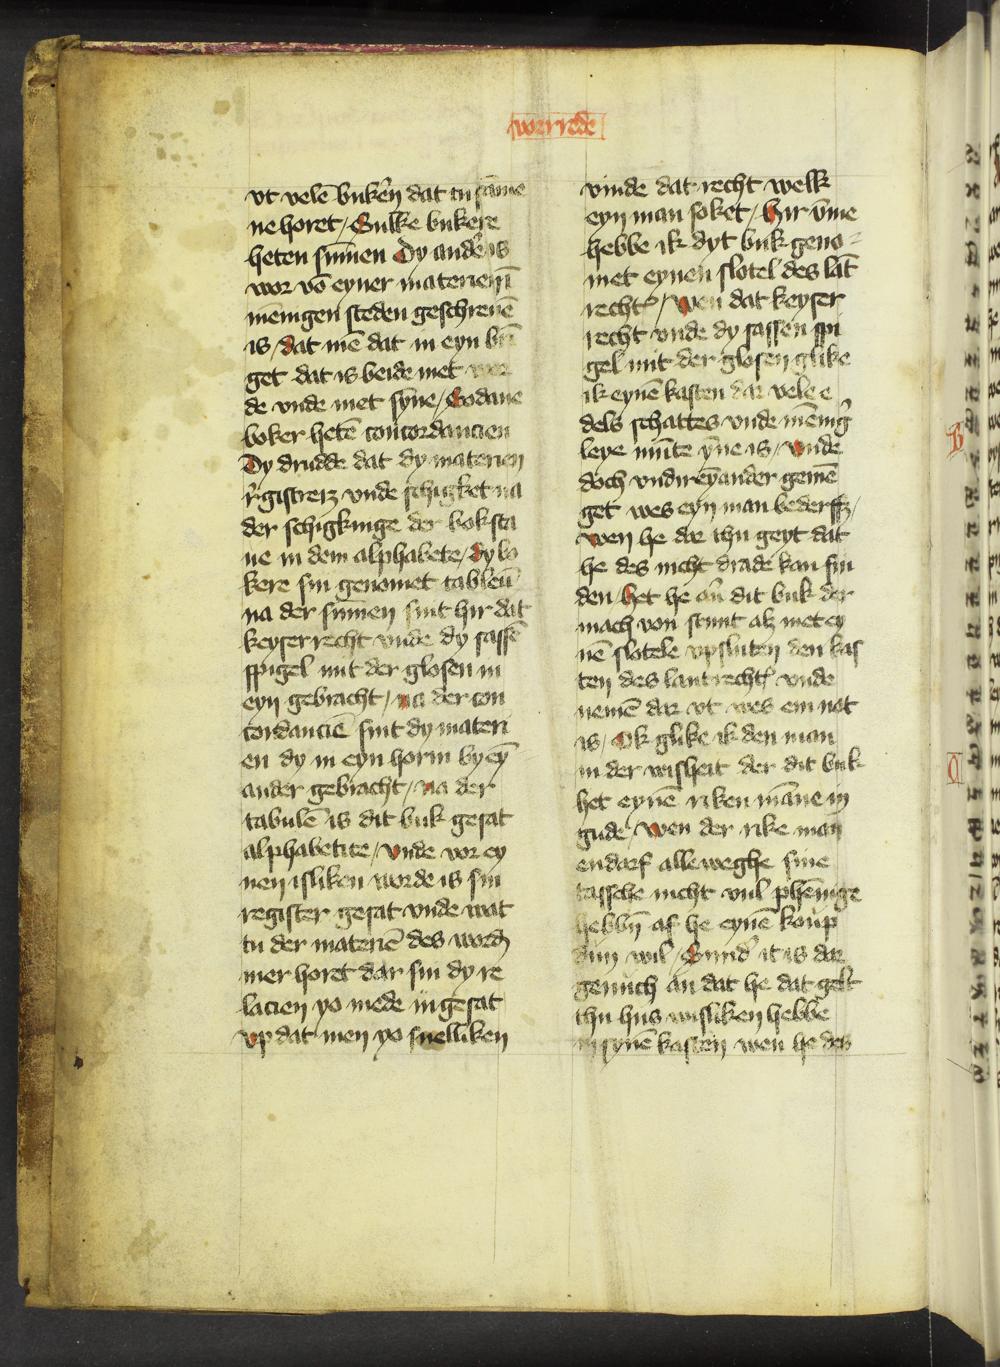 vorrede
vt velē bukeṙn dat tu same
ne horet / Sulke bukere
heten sum̄en Dy andeṙ is
wor vō eyner materien ī
menigen steden geschreuē
is / dat mē dat in eyn brī
get dat is beide met wor
de vnde met syne / Sodane
boker hetē concordancien
Dy drudde dat dy materien
rͤgistreiz vnde schigket na
der schigkinge der boksta
ue in dem alphabete / Dy bo
kere sin genomet tabuleū
na der sum̄en sint hir dat
keyserrecht vnde dy sassē
spigel mit der glosen in
eyn gebracht / na der con
cordanciē sint dy materi
en dy in eyn horin by eȳ
ander gebracht / na der
tabulē is dit buk gesat
alphabetite / vnde vor ey
nen isliken worde is sin
register gesat vnde wat
tu der materiē des words
mer horet dar sin dy re
lacien yo mede in gesat
vp dat men yo snelliken
vinde dat recht welk
eyn man soket / Hir v̄me
hebbe ik dyt buk geno
met eynen slotel des lāt
rechts / Wen dat keyser
recht vnde dy sassen spi
gel mit der glosen glike
ik eynē kasten dar vele e
dels schattes vnde mēnig̉
leye mūte ȳne is / vnde
doch vndir eyander gemē
get wes eyn man bederffz /
wen he dar thu geyt dat
he des nicht drade kan fin
den het he aū dit buk der
mach von stunt alz met ey
nē slotele vpsluten den kas
ten des lantrechts vnde
nemē dar vt wes em not
is / Ok glike ik den man
in der wisheit der dit buk
het eynē riken māne in
gude / wen der rike man
endarf alleweghe sine
tassche nicht vul phēnige
hebbn̄ af he eynē koūp
dun wil / Sund̉ it is dar
genuch an dat he dat gelt
thu hus wisliken hebbe
in synē kasten wen he des